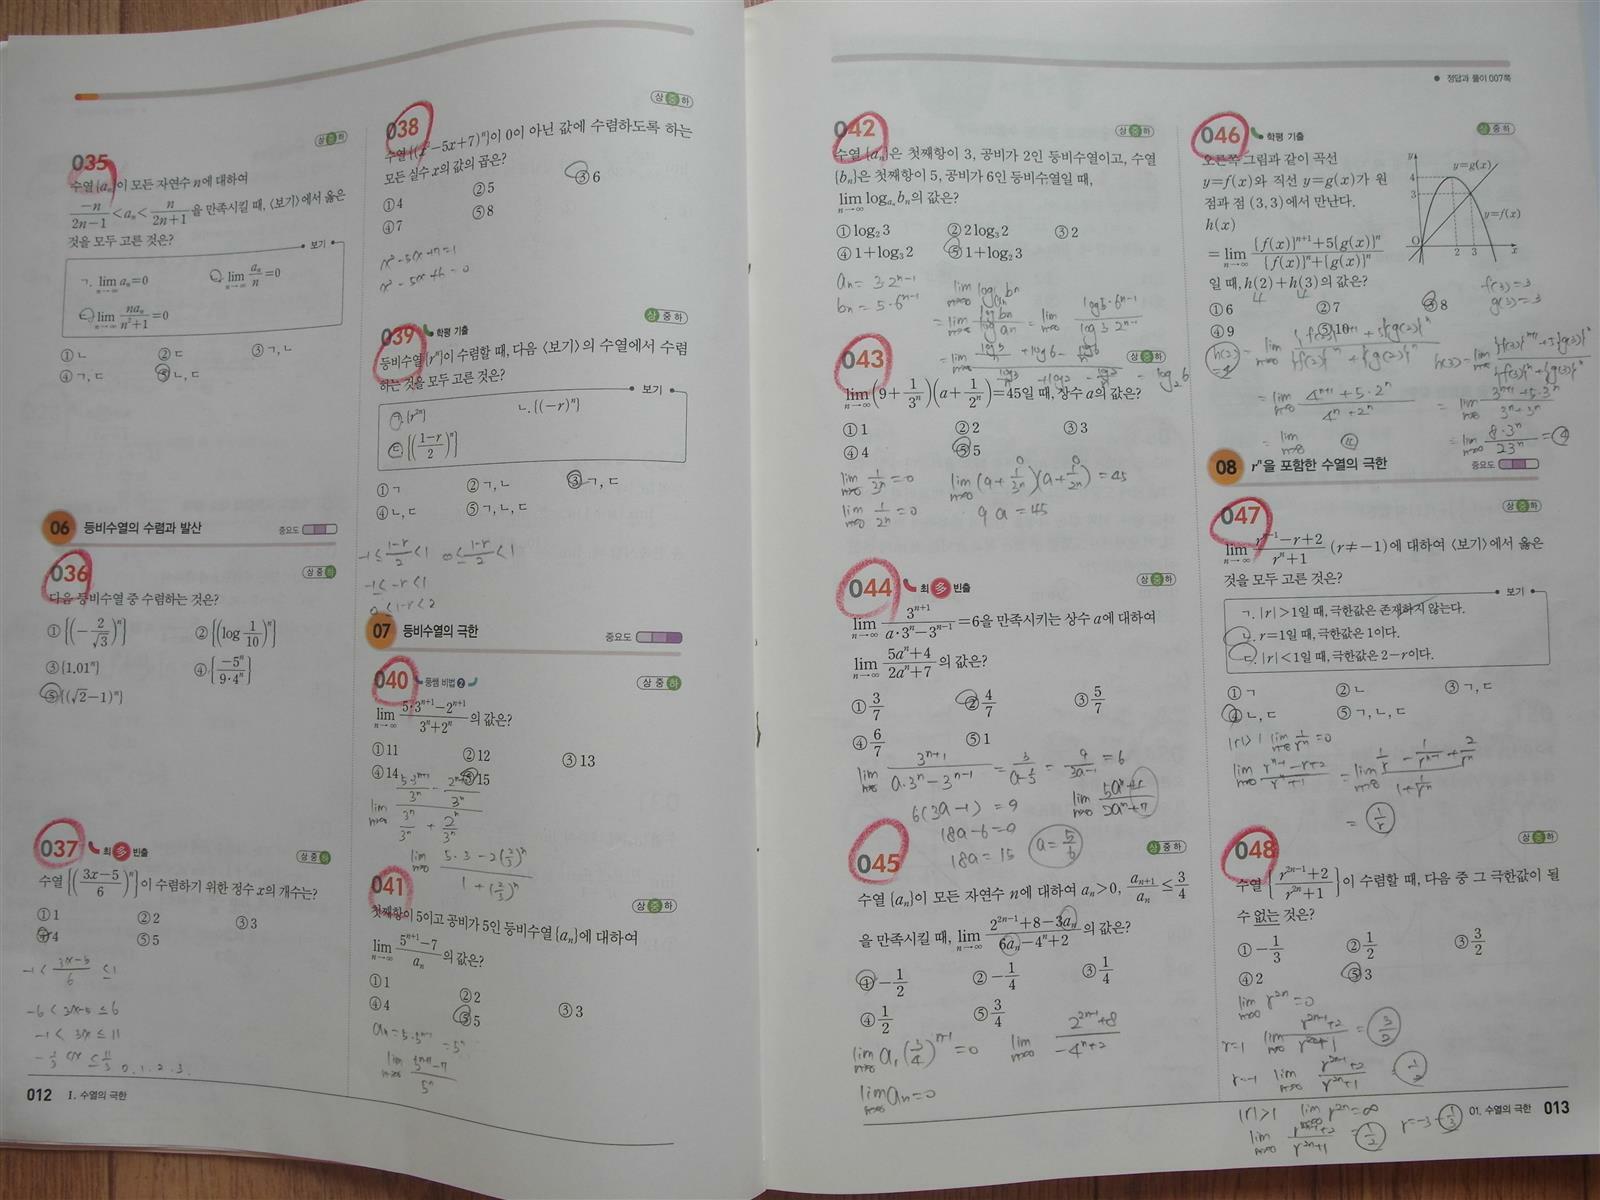 035
상중하
수열 {aₙ}이 모든 자연수 n에 대하여
-n/(2n-1) < aₙ < n/(2n+1) 을 만족시킬 때, 〈보기〉에서 옳은
것을 모두 고른 것은?
보기
ㄱ. lim(n→∞) aₙ=0
ㄴ. lim(n→∞) aₙ/n=0
ㄷ. lim(n→∞) naₙ/(n²+1)=0
①ㄴ ②ㄷ ③ㄱ, ㄴ
④ㄱ, ㄷ ⑤ㄴ, ㄷ
06 등비수열의 수렴과 발산 중요도
036
상중하
다음 등비수열 중 수렴하는 것은?
① {(-2/√3)ⁿ} ② {(log 1/10)ⁿ}
③ {1.01ⁿ} ④ {-5ⁿ/(9·4ⁿ)}
⑤ {(√2-1)ⁿ}
037 최多빈출
상중하
수열 {((3x-5)/6)ⁿ}이 수렴하기 위한 정수 x의 개수는?
①1 ②2 ③3
④4 ⑤5
-1 < (3x-5)/6 ≤1
-6 < 3x-5 ≤ 6
-1 < 3x ≤ 11
-1/3 < x ≤ 11/3 0, 1, 2, 3.
012 Ⅰ. 수열의 극한
038
상중하
수열 {(x²-5x+7)ⁿ}이 0이 아닌 값에 수렴하도록 하는
모든 실수 x의 값의 곱은?
①4 ②5 ③6
④7 ⑤8
x²-5x+7=1
x²-5x+6=0
039 학평 기출
상중하
등비수열 {rⁿ}이 수렴할 때, 다음 〈보기〉의 수열에서 수렴
하는 것을 모두 고른 것은?
보기
ㄱ. {r²ⁿ} ㄴ. {(-r)ⁿ}
ㄷ. {((1-r)/2)ⁿ}
①ㄱ ②ㄱ, ㄴ ③ㄱ, ㄷ
④ㄴ, ㄷ ⑤ㄱ, ㄴ, ㄷ
-1≤ (1-r)/2 <1 0≤ (1-r)/2 <1
-1≤ -r <1
0 <1-r <2
07 등비수열의 극한 중요도
040 풍쌤 비법 2
상중하
lim(n→∞) (5·3ⁿ⁺¹-2ⁿ⁺¹)/(3ⁿ+2ⁿ)의 값은?
①11 ②12 ③13
④14 ⑤15
lim(n→∞) (5·3ⁿ⁺¹/3ⁿ - 2ⁿ⁺¹/3ⁿ)/(3ⁿ/3ⁿ + 2ⁿ/3ⁿ)
lim(n→∞) (5·3-2(2/3)ⁿ)/(1+(2/3)ⁿ)
041
상중하
첫째항이 5이고 공비가 5인 등비수열 {aₙ}에 대하여
lim(n→∞) (5ⁿ⁺¹-7)/aₙ의 값은?
①1 ②2 ③3
④4 ⑤5
aₙ=5·5ⁿ⁻¹ =5ⁿ
lim(n→∞) (5ⁿ⁺¹-7)/5ⁿ
정답과 풀이 007쪽
042
상중하
수열 {aₙ}은 첫째항이 3, 공비가 2인 등비수열이고, 수열
{bₙ}은 첫째항이 5, 공비가 6인 등비수열일 때,
lim(n→∞) log_aₙ bₙ의 값은?
①log₂3 ②2 log₃2 ③2
④1+log₃2 ⑤1+log₂3
aₙ=3·2ⁿ⁻¹
bₙ=5·6ⁿ⁻¹
lim(n→∞) log_aₙ bₙ
= lim(n→∞) log bₙ/log aₙ = lim(n→∞) log5·6ⁿ⁻¹/log3·2ⁿ⁻¹
= lim(n→∞) (log5/n + log6 - log6/n)/(log3/n + log2 - log2/n) = log₂6
043
상중하
lim(n→∞) (9+1/3ⁿ)(a+1/2ⁿ)=45일 때, 상수 a의 값은?
①1 ②2 ③3
④4 ⑤5
lim(n→∞) 1/3ⁿ =0 lim(n→∞) (9+1/3ⁿ)(a+1/2ⁿ) =45
lim(n→∞) 1/2ⁿ =0 9a=45
044 최多빈출
상중하
lim(n→∞) 3ⁿ⁺¹/(a·3ⁿ-3ⁿ⁻¹)=6을 만족시키는 상수 a에 대하여
lim(n→∞) (5aⁿ+4)/(2aⁿ+7)의 값은?
①3/7 ②4/7 ③5/7
④6/7 ⑤1
lim(n→∞) 3ⁿ⁺¹/(a·3ⁿ-3ⁿ⁻¹) = 3/(a-1/3) = 9/(3a-1) =6
6(3a-1) =9 lim(n→∞) (5aⁿ+4)/(2aⁿ+7)
18a-6=9
18a=15 a=5/6
045
상중하
수열 {aₙ}이 모든 자연수 n에 대하여 aₙ>0, aₙ₊₁/aₙ ≤ 3/4
을 만족시킬 때, lim(n→∞) (2²ⁿ⁻¹+8-3aₙ)/(6aₙ-4ⁿ+2)의 값은?
①-1/2 ②-1/4 ③1/4
④1/2 ⑤3/4
lim(n→∞) a₁(3/4)ⁿ⁻¹=0 lim(n→∞) (2²ⁿ⁻¹+8)/(-4ⁿ+2)
lim(n→∞) aₙ=0
046 학평 기출
상중하
오른쪽 그림과 같이 곡선
y=f(x)와 직선 y=g(x)가 원
점과 점 (3, 3)에서 만난다.
h(x)
=lim(n→∞) ({f(x)}ⁿ⁺¹+5{g(x)}ⁿ)/({f(x)}ⁿ+{g(x)}ⁿ)
일 때, h(2)+h(3)의 값은?
y y=g(x) 4 3 y=f(x) O 2 3 x
①6 ②7 ③8
④9 ⑤10
4 4
f(3)=3
g(3)=3
h(2) = lim(n→∞) ({f(2)}ⁿ⁺¹+5{g(2)}ⁿ)/({f(2)}ⁿ+{g(2)}ⁿ) h(3)=lim(n→∞) ({f(3)}ⁿ⁺¹+5{g(3)}ⁿ)/({f(3)}ⁿ+{g(3)}ⁿ)
=4
= lim(n→∞) (4ⁿ⁺¹+5·2ⁿ)/(4ⁿ+2ⁿ) = lim(n→∞) (3ⁿ⁺¹+5·3ⁿ)/(3ⁿ+3ⁿ)
= lim(n→∞) 4 = lim(n→∞) 8·3ⁿ/2·3ⁿ = 4
08 rⁿ을 포함한 수열의 극한 중요도
047
상중하
lim(n→∞) (rⁿ⁻¹-r+2)/(rⁿ+1) (r≠-1)에 대하여 〈보기〉에서 옳은
것을 모두 고른 것은?
보기
ㄱ. |r|>1일 때, 극한값은 존재하지 않는다.
ㄴ. r=1일 때, 극한값은 1이다.
ㄷ. |r|<1일 때, 극한값은 2-r이다.
①ㄱ ②ㄴ ③ㄱ, ㄷ
④ㄴ, ㄷ ⑤ㄱ, ㄴ, ㄷ
|r|>1 lim(n→∞) 1/rⁿ =0
lim(n→∞) (rⁿ⁻¹-r+2)/(rⁿ+1) = lim(n→∞) (1/r - 1/rⁿ⁻¹ + 2/rⁿ)/(1+1/rⁿ)
= 1/r
048
상중하
수열 {(r²ⁿ⁻¹+2)/(r²ⁿ+1)}이 수렴할 때, 다음 중 그 극한값이 될
수 없는 것은?
①-1/3 ②1/2 ③3/2
④2 ⑤3
lim(n→∞) r²ⁿ=0
r=1 lim(n→∞) (r²ⁿ⁻¹+2)/(r²ⁿ+1) = 3/2
r=-1 lim(n→∞) (r²ⁿ⁻¹+2)/(r²ⁿ+1) = 1/2
|r|>1 lim(n→∞) r²ⁿ=∞ r=-3 -1/3
lim(n→∞) (r²ⁿ⁻¹+2)/(r²ⁿ+1) = 1/2
01. 수열의 극한 013